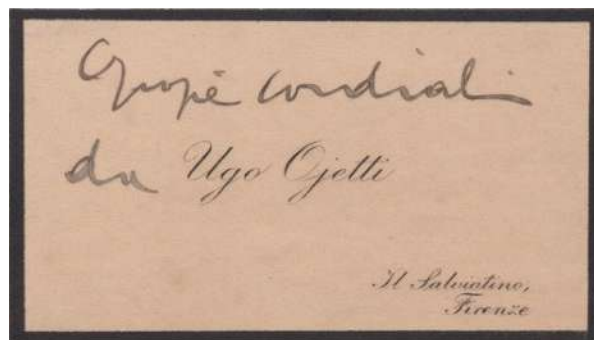 Grazie cordiali
da Ugo Ojetti
Il Salviatino,
Firenze